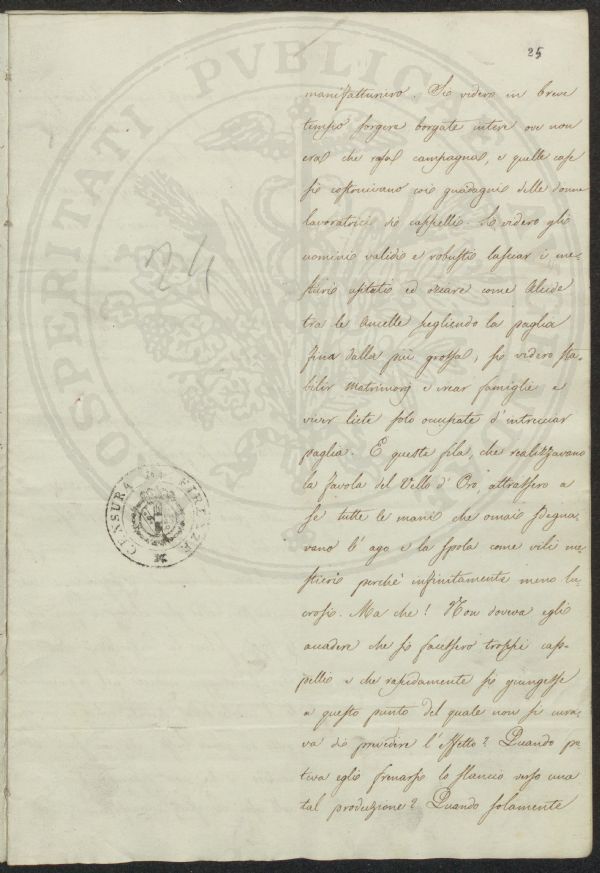 25
manifatturiero. Si videro in breve
tempo sorgere borgate intere ove non
eran che rasa campagna, e quelle case
si costruivano coi guadagni delle donne
lavoratrici di cappelli. Si videro gli
uomini validi e robusti lasciar i me-
stieri usitati ed oziare come Alcide
tra le Ancelle scegliendo la paglia
fina dalla più grossa, si videro sta-
bilir matrimonj e crear famiglie e
viver liete solo occupate d'intrecciar
paglia. E queste fila, che realizzavano
la favola del Vello d'Oro, attrassero a
sè tutte le mani che omai sdegna-
vano l'ago e la spola come vili me-
stieri perchè infinitamente meno lu-
crosi. Ma che! Non doveva egli
accadere che si facessero troppi cap-
pelli e che rapidamente si giungesse
a questo punto del quale non si cura-
va di prevedere l'effetto? Quando po-
teva egli frenarsi lo slancio verso una
tal produzione? Quando solamente
24
CENSURA DI FIRENZE
PROSPERITATI PVBLICAE